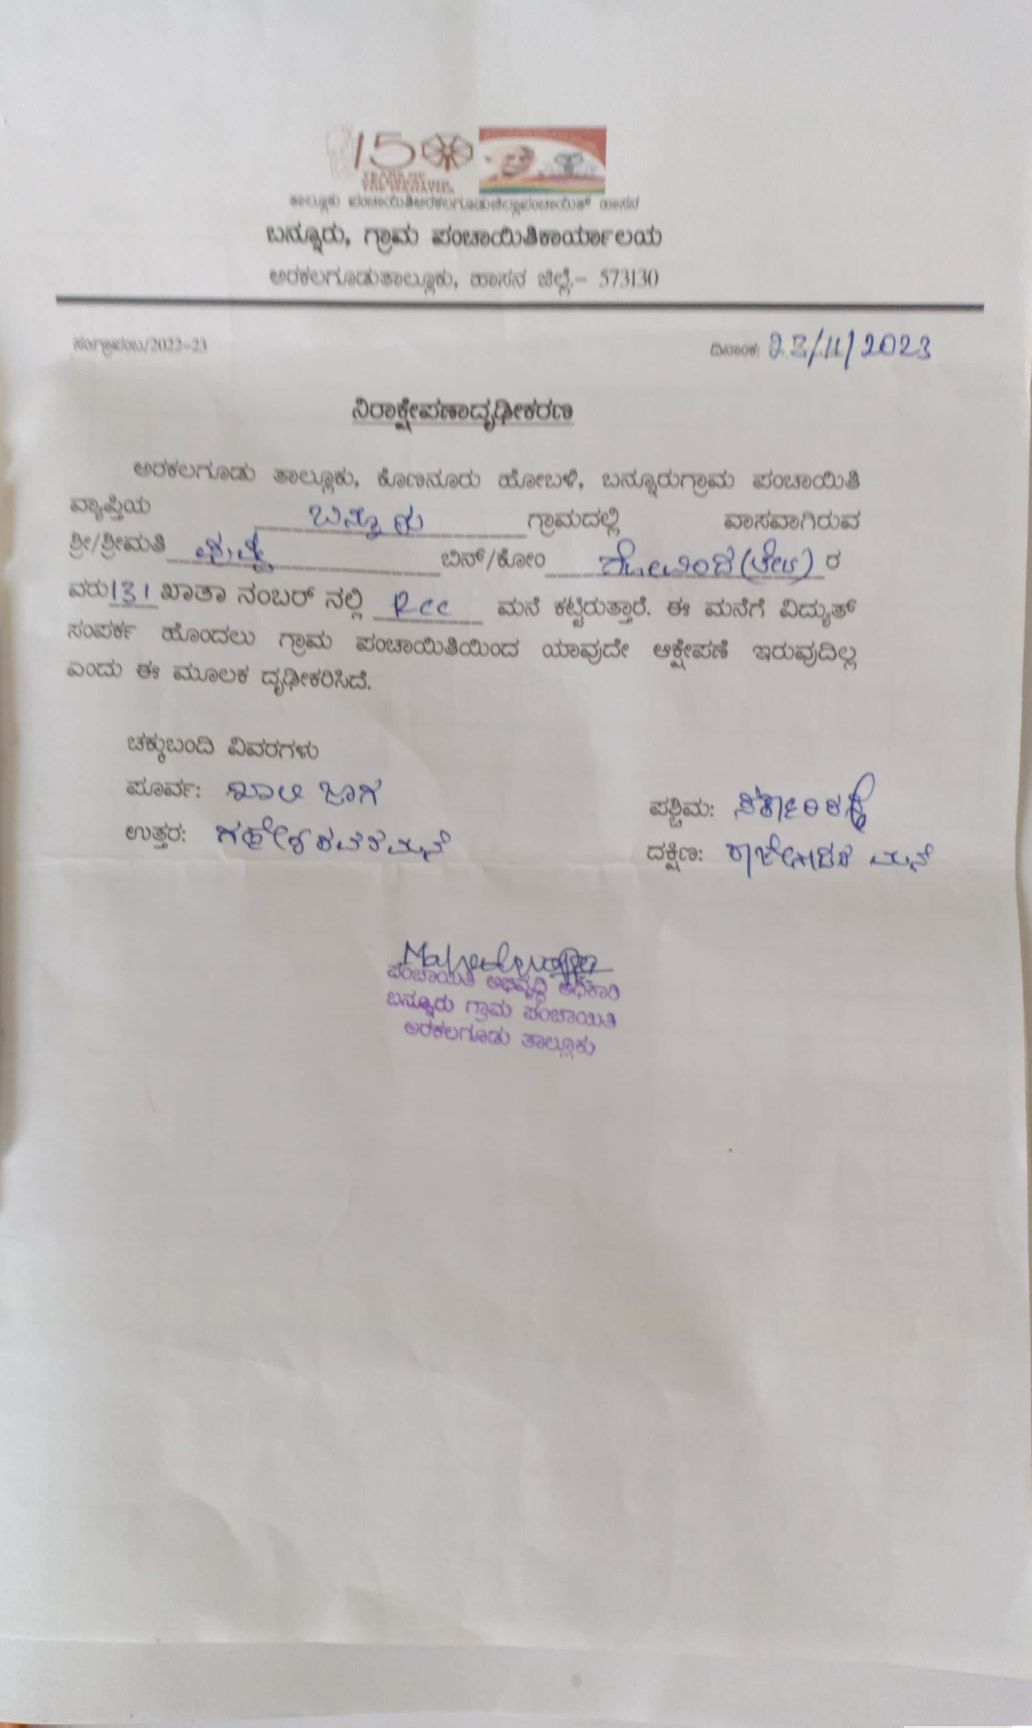 150
YEARS OF
ತಾಲ್ಲೂಕು ಪಂಚಾಯಿತಿಅರಕಲಗೂಡುಜಿಲ್ಲಾಪಂಚಾಯಿತ್ ಹಾಸನ
ಬನ್ನೂರು, ಗ್ರಾಮ ಪಂಚಾಯಿತಿಕಾರ್ಯಾಲಯ
ಅರಕಲಗೂಡುತಾಲ್ಲೂಕು, ಹಾಸನ ಜಿಲ್ಲೆ.- 573130
ಸಂ/ಗ್ರಾಪಂಬ/2022-23 ದಿನಾಂಕ: 23/11/2023
ನಿರಾಕ್ಷೇಪಣಾದೃಢೀಕರಣ
ಅರಕಲಗೂಡು ತಾಲ್ಲೂಕು, ಕೊಣನೂರು ಹೋಬಳಿ, ಬನ್ನೂರುಗ್ರಾಮ ಪಂಚಾಯಿತಿ
ವ್ಯಾಪ್ತಿಯ ಬನ್ನೂರು ಗ್ರಾಮದಲ್ಲಿ ವಾಸವಾಗಿರುವ
ಶ್ರೀ/ಶ್ರೀಮತಿ ಬಿನ್/ಕೋಂ ಗೋವಿಂದ (ಲೇಟ್) ರ
ವರು 131 ಖಾತಾ ನಂಬರ್ ನಲ್ಲಿ Rcc ಮನೆ ಕಟ್ಟಿರುತ್ತಾರೆ. ಈ ಮನೆಗೆ ವಿದ್ಯುತ್
ಸಂಪರ್ಕ ಹೊಂದಲು ಗ್ರಾಮ ಪಂಚಾಯಿತಿಯಿಂದ ಯಾವುದೇ ಆಕ್ಷೇಪಣೆ ಇರುವುದಿಲ್ಲ
ಎಂದು ಈ ಮೂಲಕ ದೃಢೀಕರಿಸಿದೆ.
ಚಕ್ಕುಬಂದಿ ವಿವರಗಳು
ಪೂರ್ವ: ಖಾಲಿ ಜಾಗ ಪಶ್ಚಿಮ:
ಉತ್ತರ: ಗಣೇಶರವರ ಮನೆ ದಕ್ಷಿಣ: ಮನೆ
ಪಂಚಾಯಿತಿ ಅಭಿವೃದ್ಧಿ ಅಧಿಕಾರಿ
ಬನ್ನೂರು ಗ್ರಾಮ ಪಂಚಾಯಿತಿ
ಅರಕಲಗೂಡು ತಾಲ್ಲೂಕು